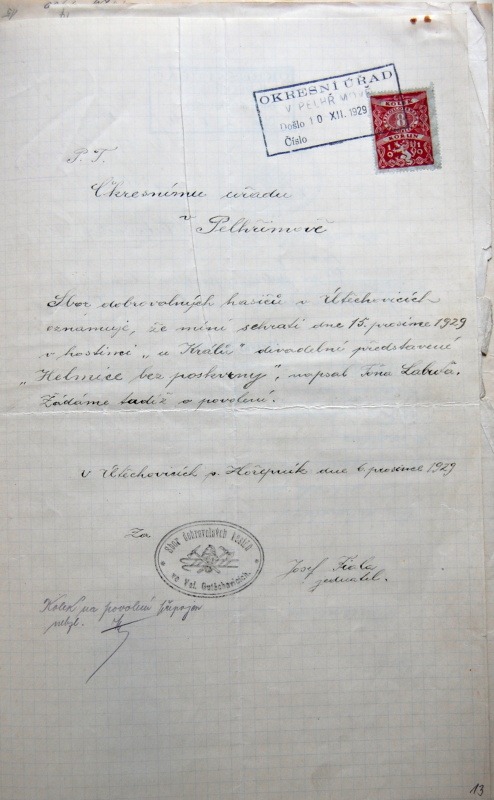 OKRESNÍ ÚŘAD
V PELHŘIMOVĚ
Došlo 10 XII. 1929
Číslo
KOLEK
8
KORUN
P. T.
Okresnímu úřadu
v
Pelhřimově
Sbor dobrovolných hasičů v Útěchovicích
oznamuje, že míní sehráti dne 15. prosince 1929
v hostinci „u Králů" divadelní představení
„Helmice bez poskvrny", napsal
Žádáme tudíž o povolení.
V Útěchovicích p. Hořepník dne 6 prosince 1929
Za
Sbor dobrovolných hasičů
ve Vel.
Josef Fiala
jednatel.
Kolek na povolení připojen
nebyl.
13